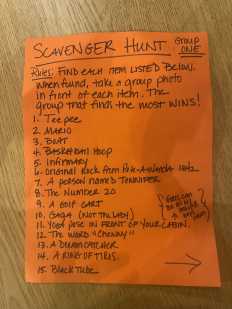 SCAVENGER HUNT: GROUP ONE
Rules: FIND EACH ITEM LISTED BELOW.
When found, take a group photo
in front of each item. The
group that finds the most WINS!
1. Teepee
2. MARIO
3. BOAT
4. BASKETBALL HOOP
5. Infirmary
6. Original Rock from 1942
7. A person named JENNIFER
8. The Number 20
9. A GOLF CART
10. GAGA (NOT the LADY)
11. YOGA pose IN FRONT OF YOUR CABIN.
12. The WORD "Chenny"
13. A DREAMCATCHER
14. A RING OF TIRES.
15. Black Tube